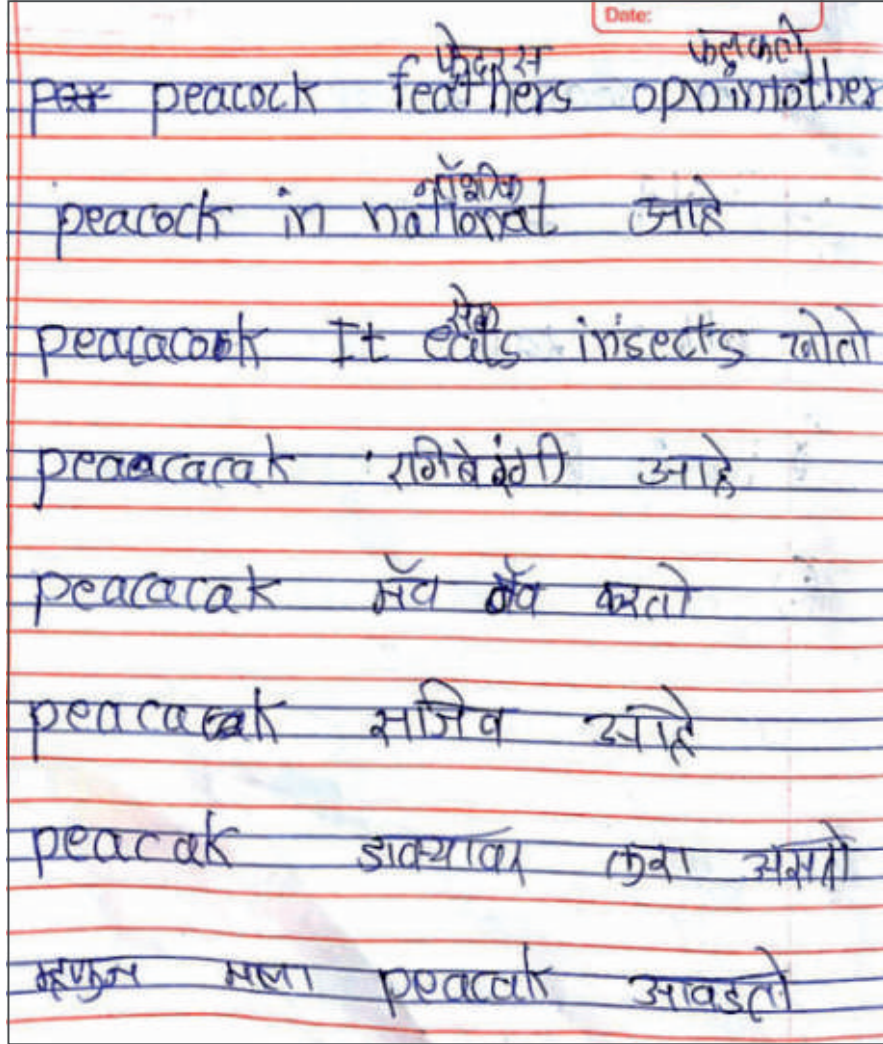 Date:
फेदरस
per peacock feathers opnintother
नॅशनल
peacock in national आहे
peacacook It eats insects खातो
peaacacak रंगिबेरंगी आहे
peacacak मॅव मॅव करतो
peacacak सजिव आहे
peacak डोक्यावर तुरा असतो
म्हणुन मला peacak आवडतो